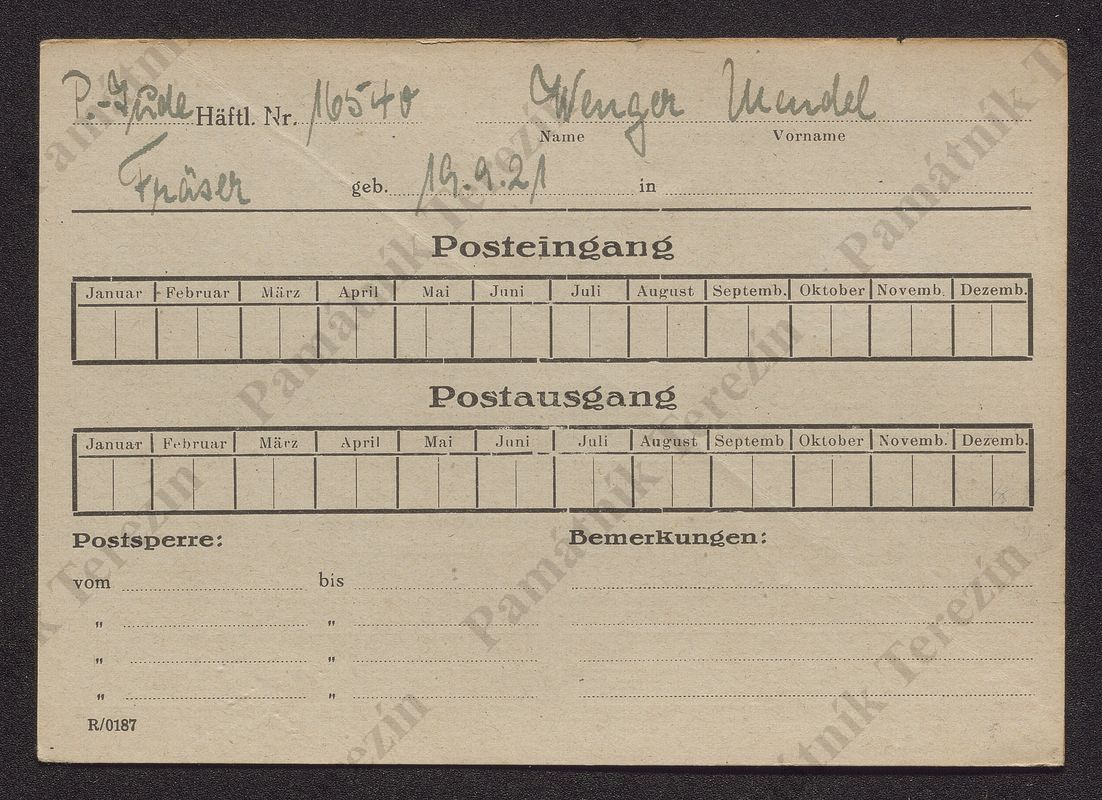 P.-Jude Häftl. Nr. 16540 Wenger Mendel
Name Vorname
Fräser geb. 19.9.21 in
Posteingang
Januar Februar März April Mai Juni Juli August Septemb. Oktober Novemb. Dezemb.
Postausgang
Januar Februar März April Mai Juni Juli August Septemb Oktober Novemb. Dezemb.
Postsperre: Bemerkungen:
vom bis
" "
" "
" "
R/0187
Památník Terezín